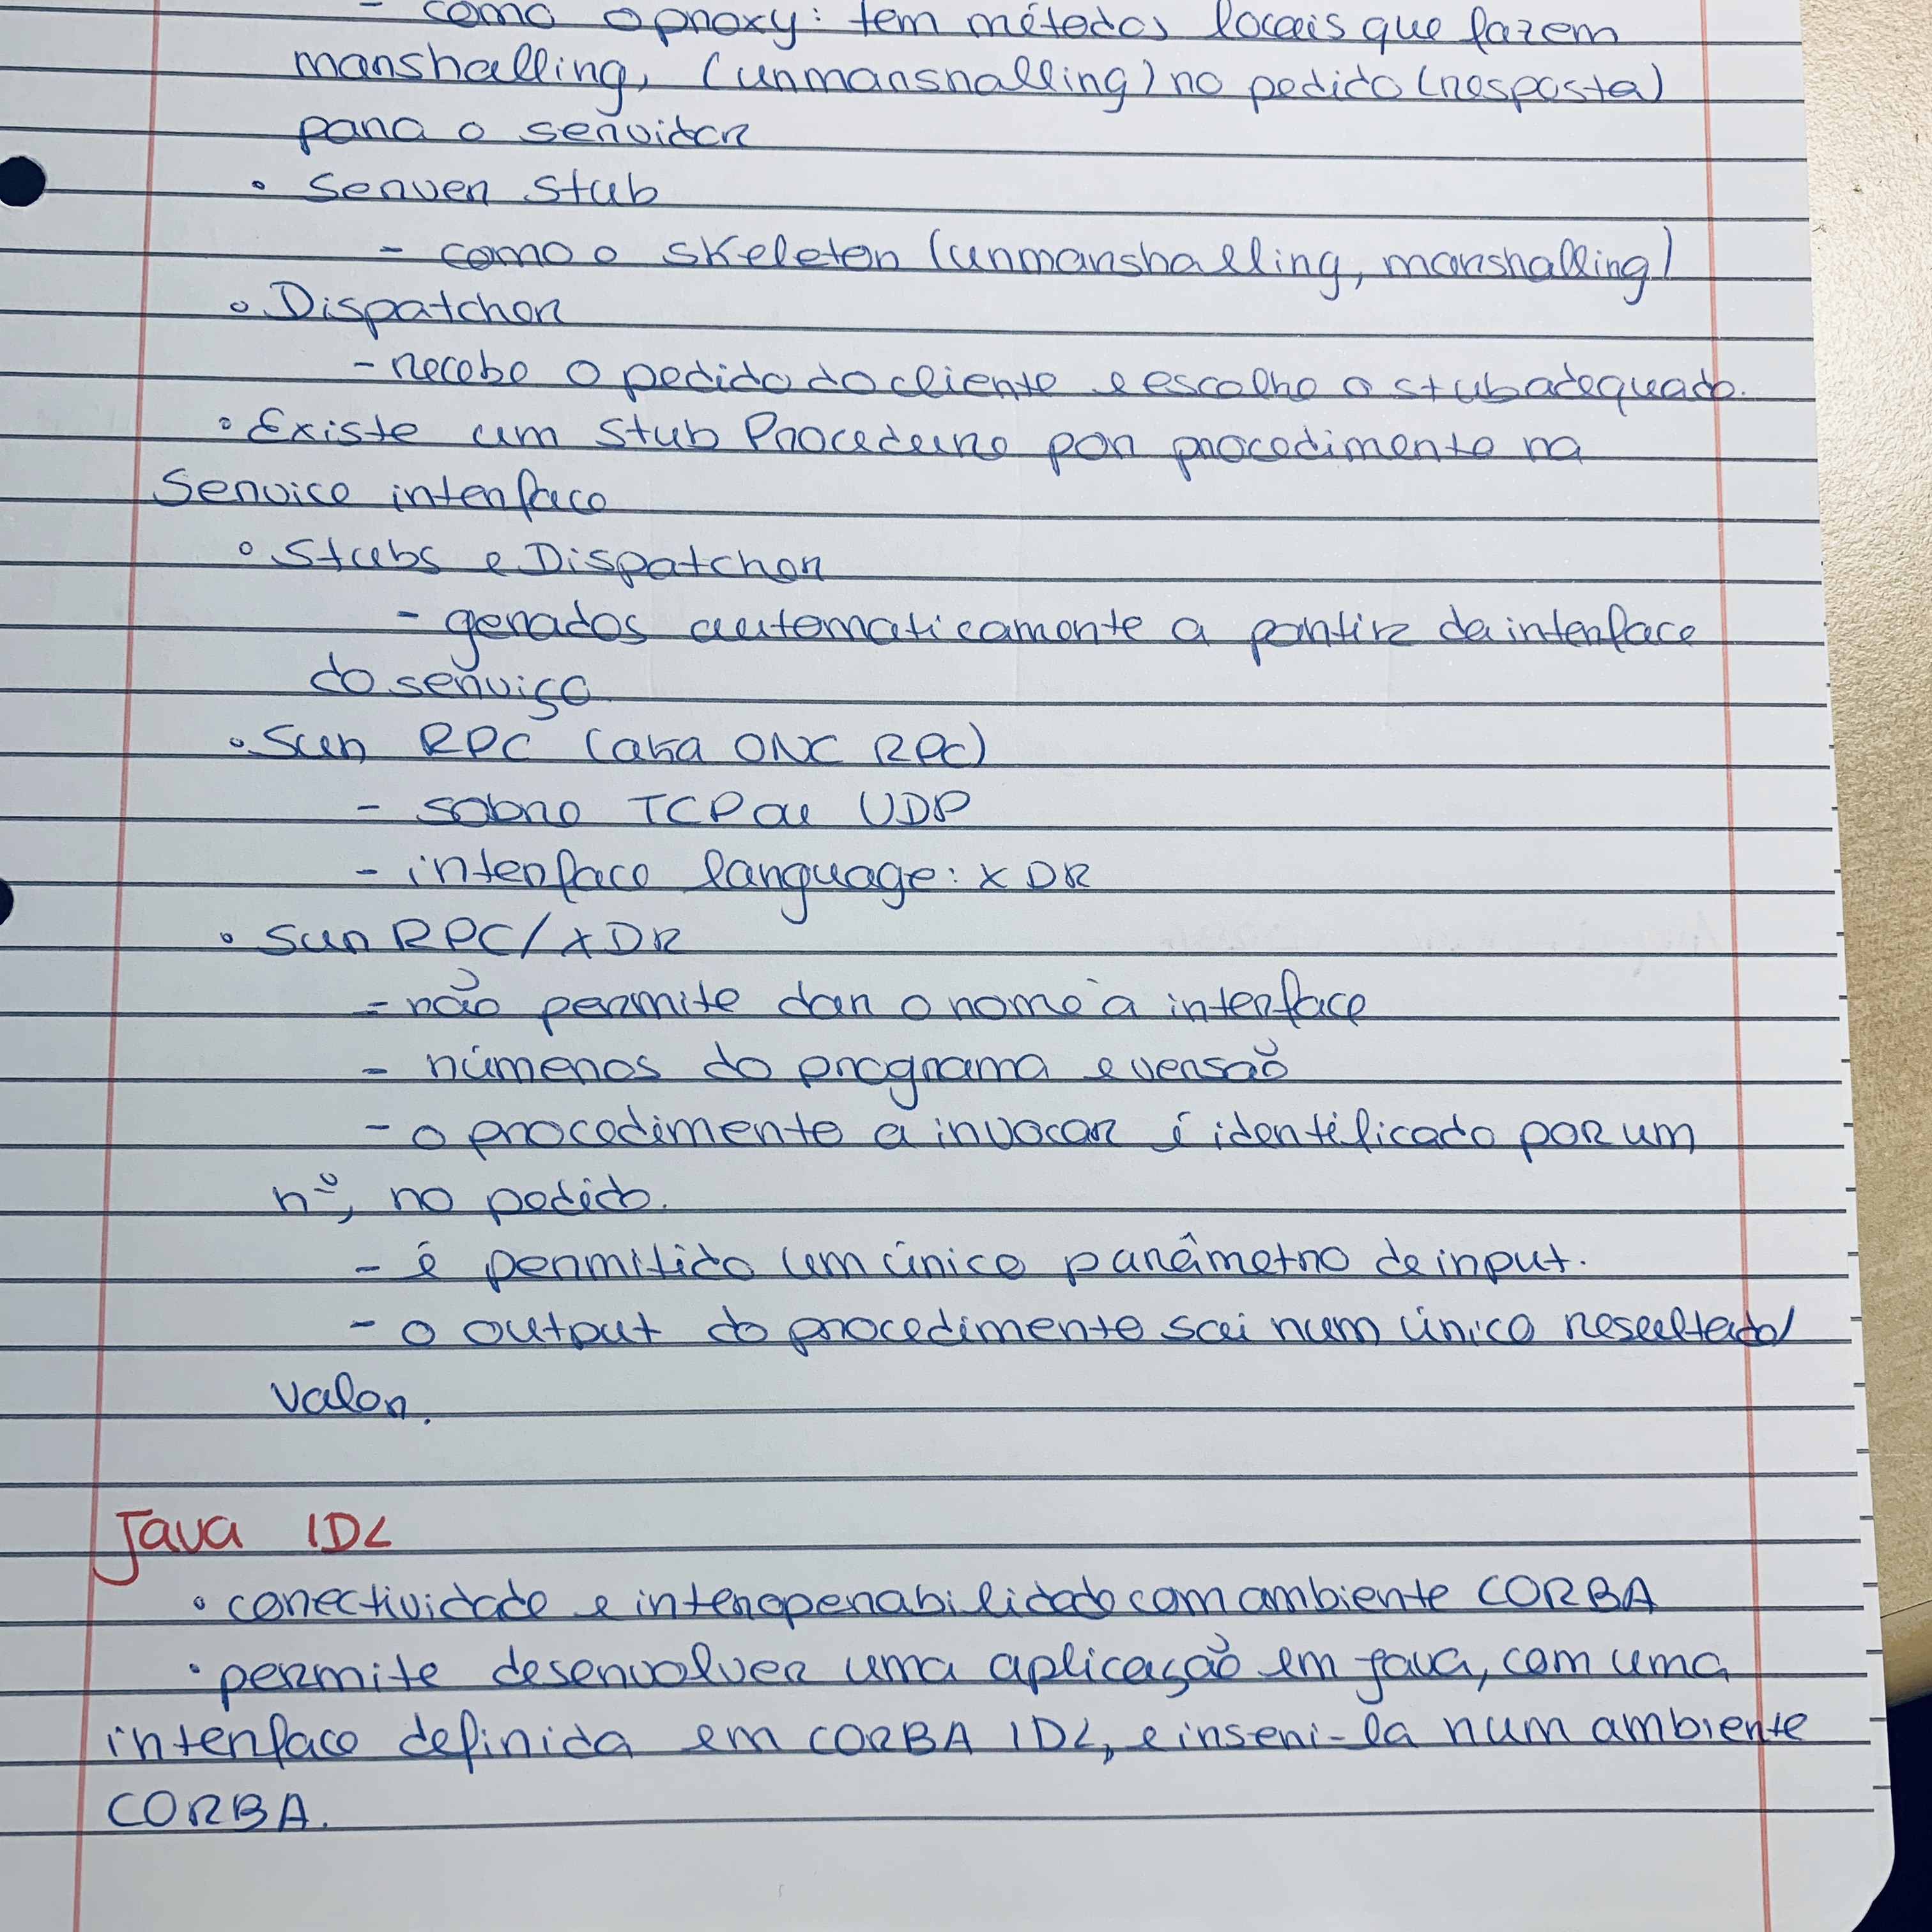 - como o proxy: tem métodos locais que fazem
marshalling, (unmarshalling) no pedido (resposta)
para o servidor
• Server Stub
- como o skeleton (unmarshalling, marshalling)
• Dispatcher
- recebe o pedido do cliente e escolhe o stub adequado.
• Existe um Stub Procedure por procedimento na
Service interface
• Stubs e Dispatcher
- gerados automaticamente a partir da interface
do serviço
• Sun RPC (aka ONC RPC)
- sobre TCP ou UDP
- interface language: XDR
• Sun RPC/XDR
- não permite dar o nome à interface
- números do programa e versão
- o procedimento a invocar é identificado por um
nº, no pedido.
- é permitido um único parâmetro de input.
- o output do procedimento sai num único resultado/
valor.
Java IDL
• conectividade e interoperabilidade com ambiente CORBA
• permite desenvolver uma aplicação em java, com uma
interface definida em CORBA IDL, e inseri-la num ambiente
CORBA.